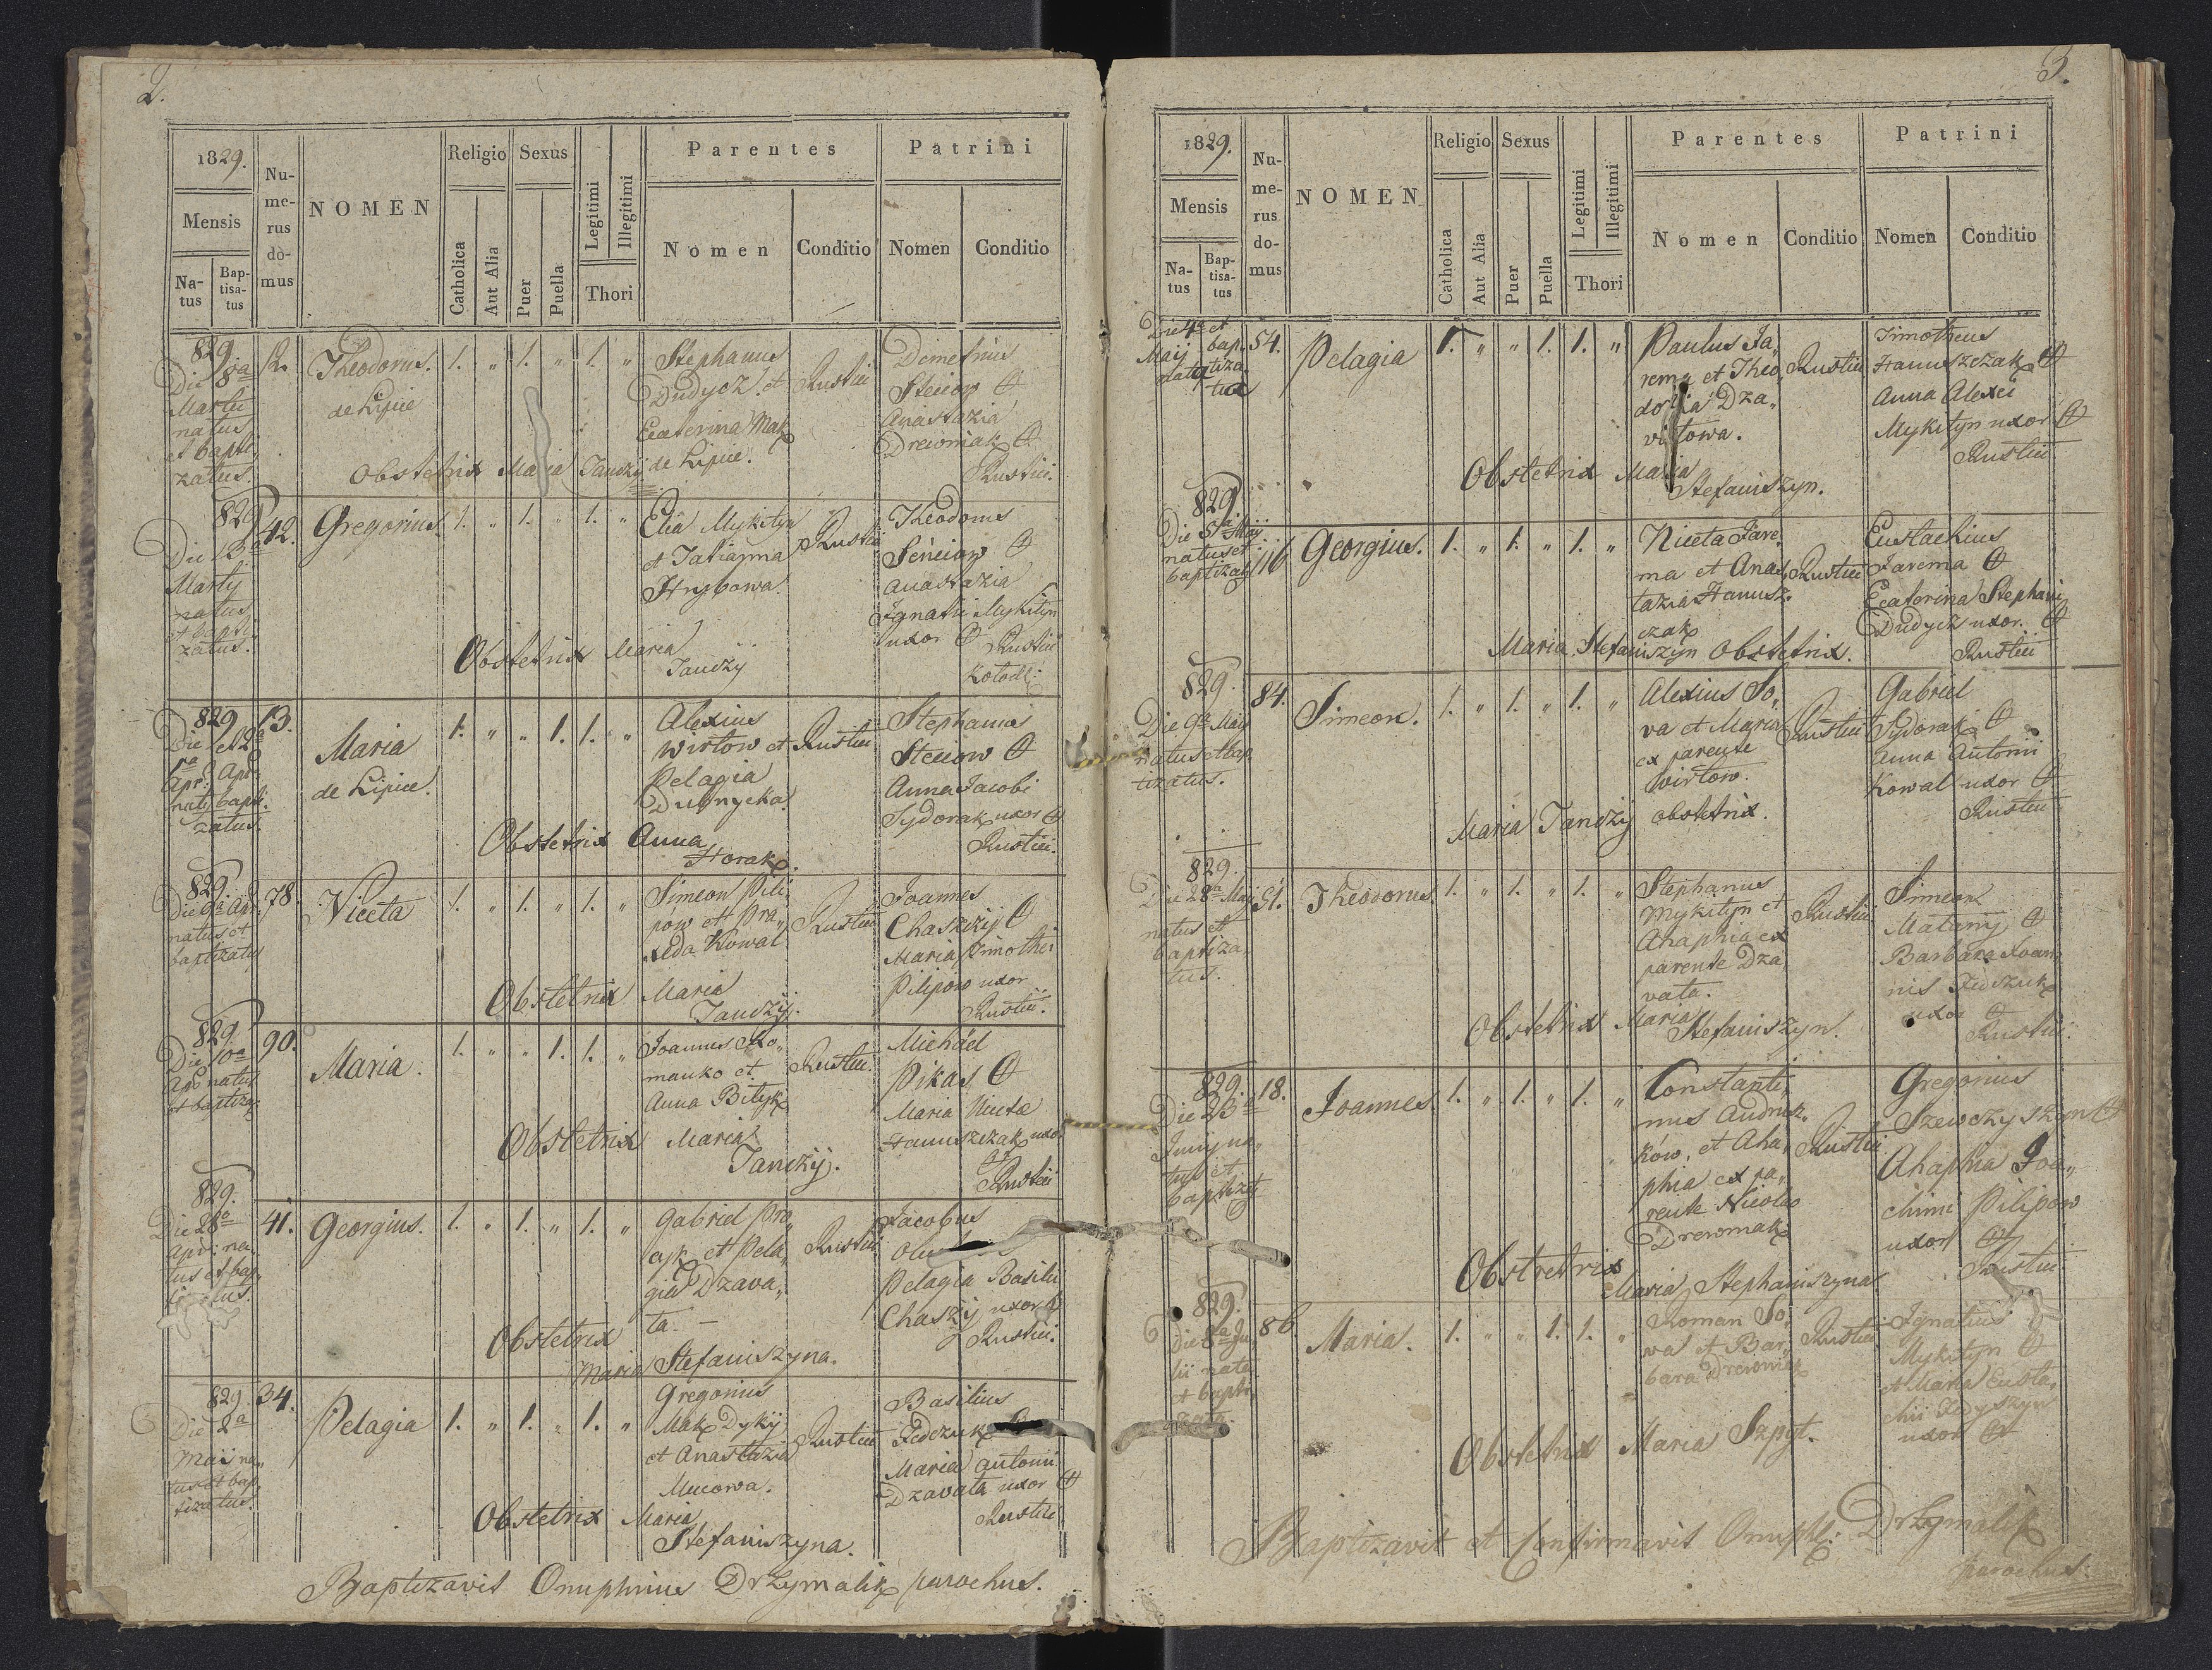 2.
1829.
Mensis
Na-
tus
Bap-
tisa-
tus
Nu-
me-
rus
do-
mus
NOMEN
Religio
Catholica
Aut Alia
Sexus
Puer
Puella
Legitimi
Illegitimi
Thori
Parentes
Nomen
Conditio
Patrini
Nomen
Conditio
829
Die 8va
Martii
natus
et bapti
zatus.
12.
Theodorus.
de Lipice
1. „ 1. „ 1. „
Stephanus
Dudycz et
Ecaterina Mak
de Lipice.
Rustici
Demetrius
Steciow
Anastazia
Drewniak
Rustici.
Obstetrix Maria Janczÿ
829
Die 13a
Martÿ
natus
et bapti
zatus.
42.
Gregorius.
1. „ 1. „ 1. „
Elia Mykityn
et Tatianna
Hrybowa.
Rustici
Theodorus
Seńciow
Anastazia
Ignatii Mykityn
uxor Rustici
Obstetrix Maria
Janczÿ
829
Die
Apr.
bapti
zatus.
13.
Maria
de Lipice.
1. „ „ 1. 1. „
Alexius
Wirtow et
Pelagia
Dubnycka.
Rustici
Stephanus
Steciow
Anna Jacobi
Sydorak uxor
Rustici.
Obstetrix Anna
Horak.
829.
Die 9a Apr.
natus et
baptizatus
78.
Niceta
1. „ 1. „ 1. „
Simeon Pili
pow et Pra„
xeda Kowal
Rustici
Joannes
Chaszczÿ
Maria Timothei
Pilipow uxor
Rustici.
Obstetrix Maria
Janczÿ.
829.
Die 10a
Apr. natus
et baptizat
90.
Maria.
1. „ „ 1. 1. „
Joannes Ro„
manko et
Anna Bilyk
Rustici.
Michäel
Pikas
Maria Niceta
Hanuszczak uxor
Rustici
Obstetrix Maria
Janczÿ.
829.
Die 28a
Apr: na„
tus et bap„
41.
Georgius.
1. „ 1. „ 1. „
Gabriel Pro
cyk et Pela„
gia Dzava„
ta. –
Rustici
Jacobus
Pelagia Basilii
Chaszÿ uxor
Rustici.
Obstetrix
Maria Stefaniszyna.
829.
Die 2a
Maii na„
tus et bap„
tizatus.
34.
Pelagia
1. „ 1. „ 1. „
Gregorius
Mak Dykÿ
et Anastazia
Mucowa.
Rustici
Basilius
Fedczuk
Maria Antonii
Dzavata uxor
Rustici
Obstetrix Maria
Stefaniszyna.
Baptizavit Onuphrius Drzymalik parochus.
3.
1829.
Mensis
Na-
tus
Bap-
tisa-
tus
Nu-
me-
rus
do-
mus
NOMEN
Religio
Catholica
Aut Alia
Sexus
Puer
Puella
Legitimi
Illegitimi
Thori
Parentes
Nomen
Conditio
Patrini
Nomen
Conditio
Die 4a et
Maÿ bap
nata tiza
ta
54.
Pelagia
1. „ „ 1. 1. „
Paulus Ja„
rema et Theo„
dozia Dza„
vitowa.
Rustici
Timotheus
Hanuszczak
Anna Alexii
Mykityn uxor
Rustici
Obstetrix Maria
Stefaniszyn.
829.
Die 5a Maÿ
natus et
baptizat
116
Georgius.
1. „ 1. „ 1. „
Niceta Jare„
ma et Anas„
tazia Hanusz„
czak
Rustici
Eustachius
Jarema
Ecaterina Stephani
Dudycz uxor.
Rustici
Maria Stefaniszyn Obstetrix.
829.
Die 9a Maÿ
natus et bap
tizatus.
84.
Simeon.
1. „ 1. „ 1. „
Alexius So„
wa et Maria
ex parente
Wirtow.
Rustici
Gabriel
Sydorak
Anna Antonii
Kowal uxor
Rustici
Maria Janczÿ obstetrix.
829.
Die 28a Maÿ
natus et
baptiza
tus.
51.
Theodorus.
1. „ 1. „ 1. „
Stephanus
Mykityn et
Ahaphia ex
parente Dza„
vata.
Rustici
Simeon
Matanÿ
Barbara Joan
nis Fedczuk
uxor
Rustici.
Obstetrix Maria
Stefaniszyn.
829.
Die 23a
Junÿ na„
tus et
baptizat
18.
Joannes.
1. „ 1. „ 1. „
Constanti„
nus Andrusz„
ków, et Aha„
phia ex pa„
rente Nicolao
Drewniak
Rustici
Gregorius
Szewczyszyn
Ahaphia Joa„
chimi Pilipow
uxor
Rustici
Obstretrix
Maria Stephaniszyna.
829.
Die 8a Ju
lii nata
et bapti
zata.
86
Maria.
1. „ „ 1. 1. „
Roman So„
wa et Bar„
bara Drewniak
Rustici
Ignatius
Mykityn
et Maria Eusta„
chii Fedyszyn
uxor
Obstetrix Maria Szpyt.
Baptizavit et Confirmavit Onuphr: Drzymalik
parochus.